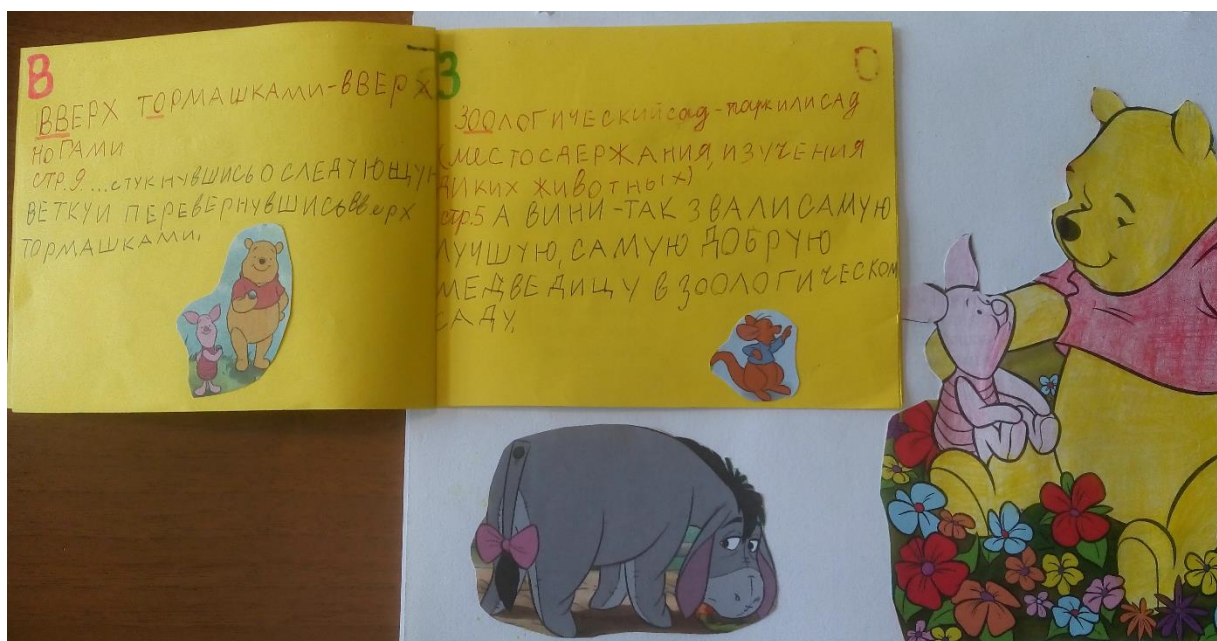 В
ВВЕРХ ТОРМАШКАМИ-ВВЕРХ
НОГАМИ
СТР.9...СТУКНУВШИСЬ О СЛЕДУЮЩУЮ
ВЕТКУ И ПЕРЕВЕРНУВШИСЬ ВВЕРХ
ТОРМАШКАМИ.
З
О
ЗООЛОГИЧЕСКИЙ сад-парк или сад
(МЕСТО СДЕРЖАНИЯ, ИЗУЧЕНИЯ
ДИКИХ ЖИВОТНЫХ)
стр.5 А ВИНИ-ТАК ЗВАЛИ САМУЮ
ЛУЧШУЮ, САМУЮ ДОБРУЮ
МЕДВЕДИЦУ В ЗООЛОГИЧЕСКОМ
САДУ.